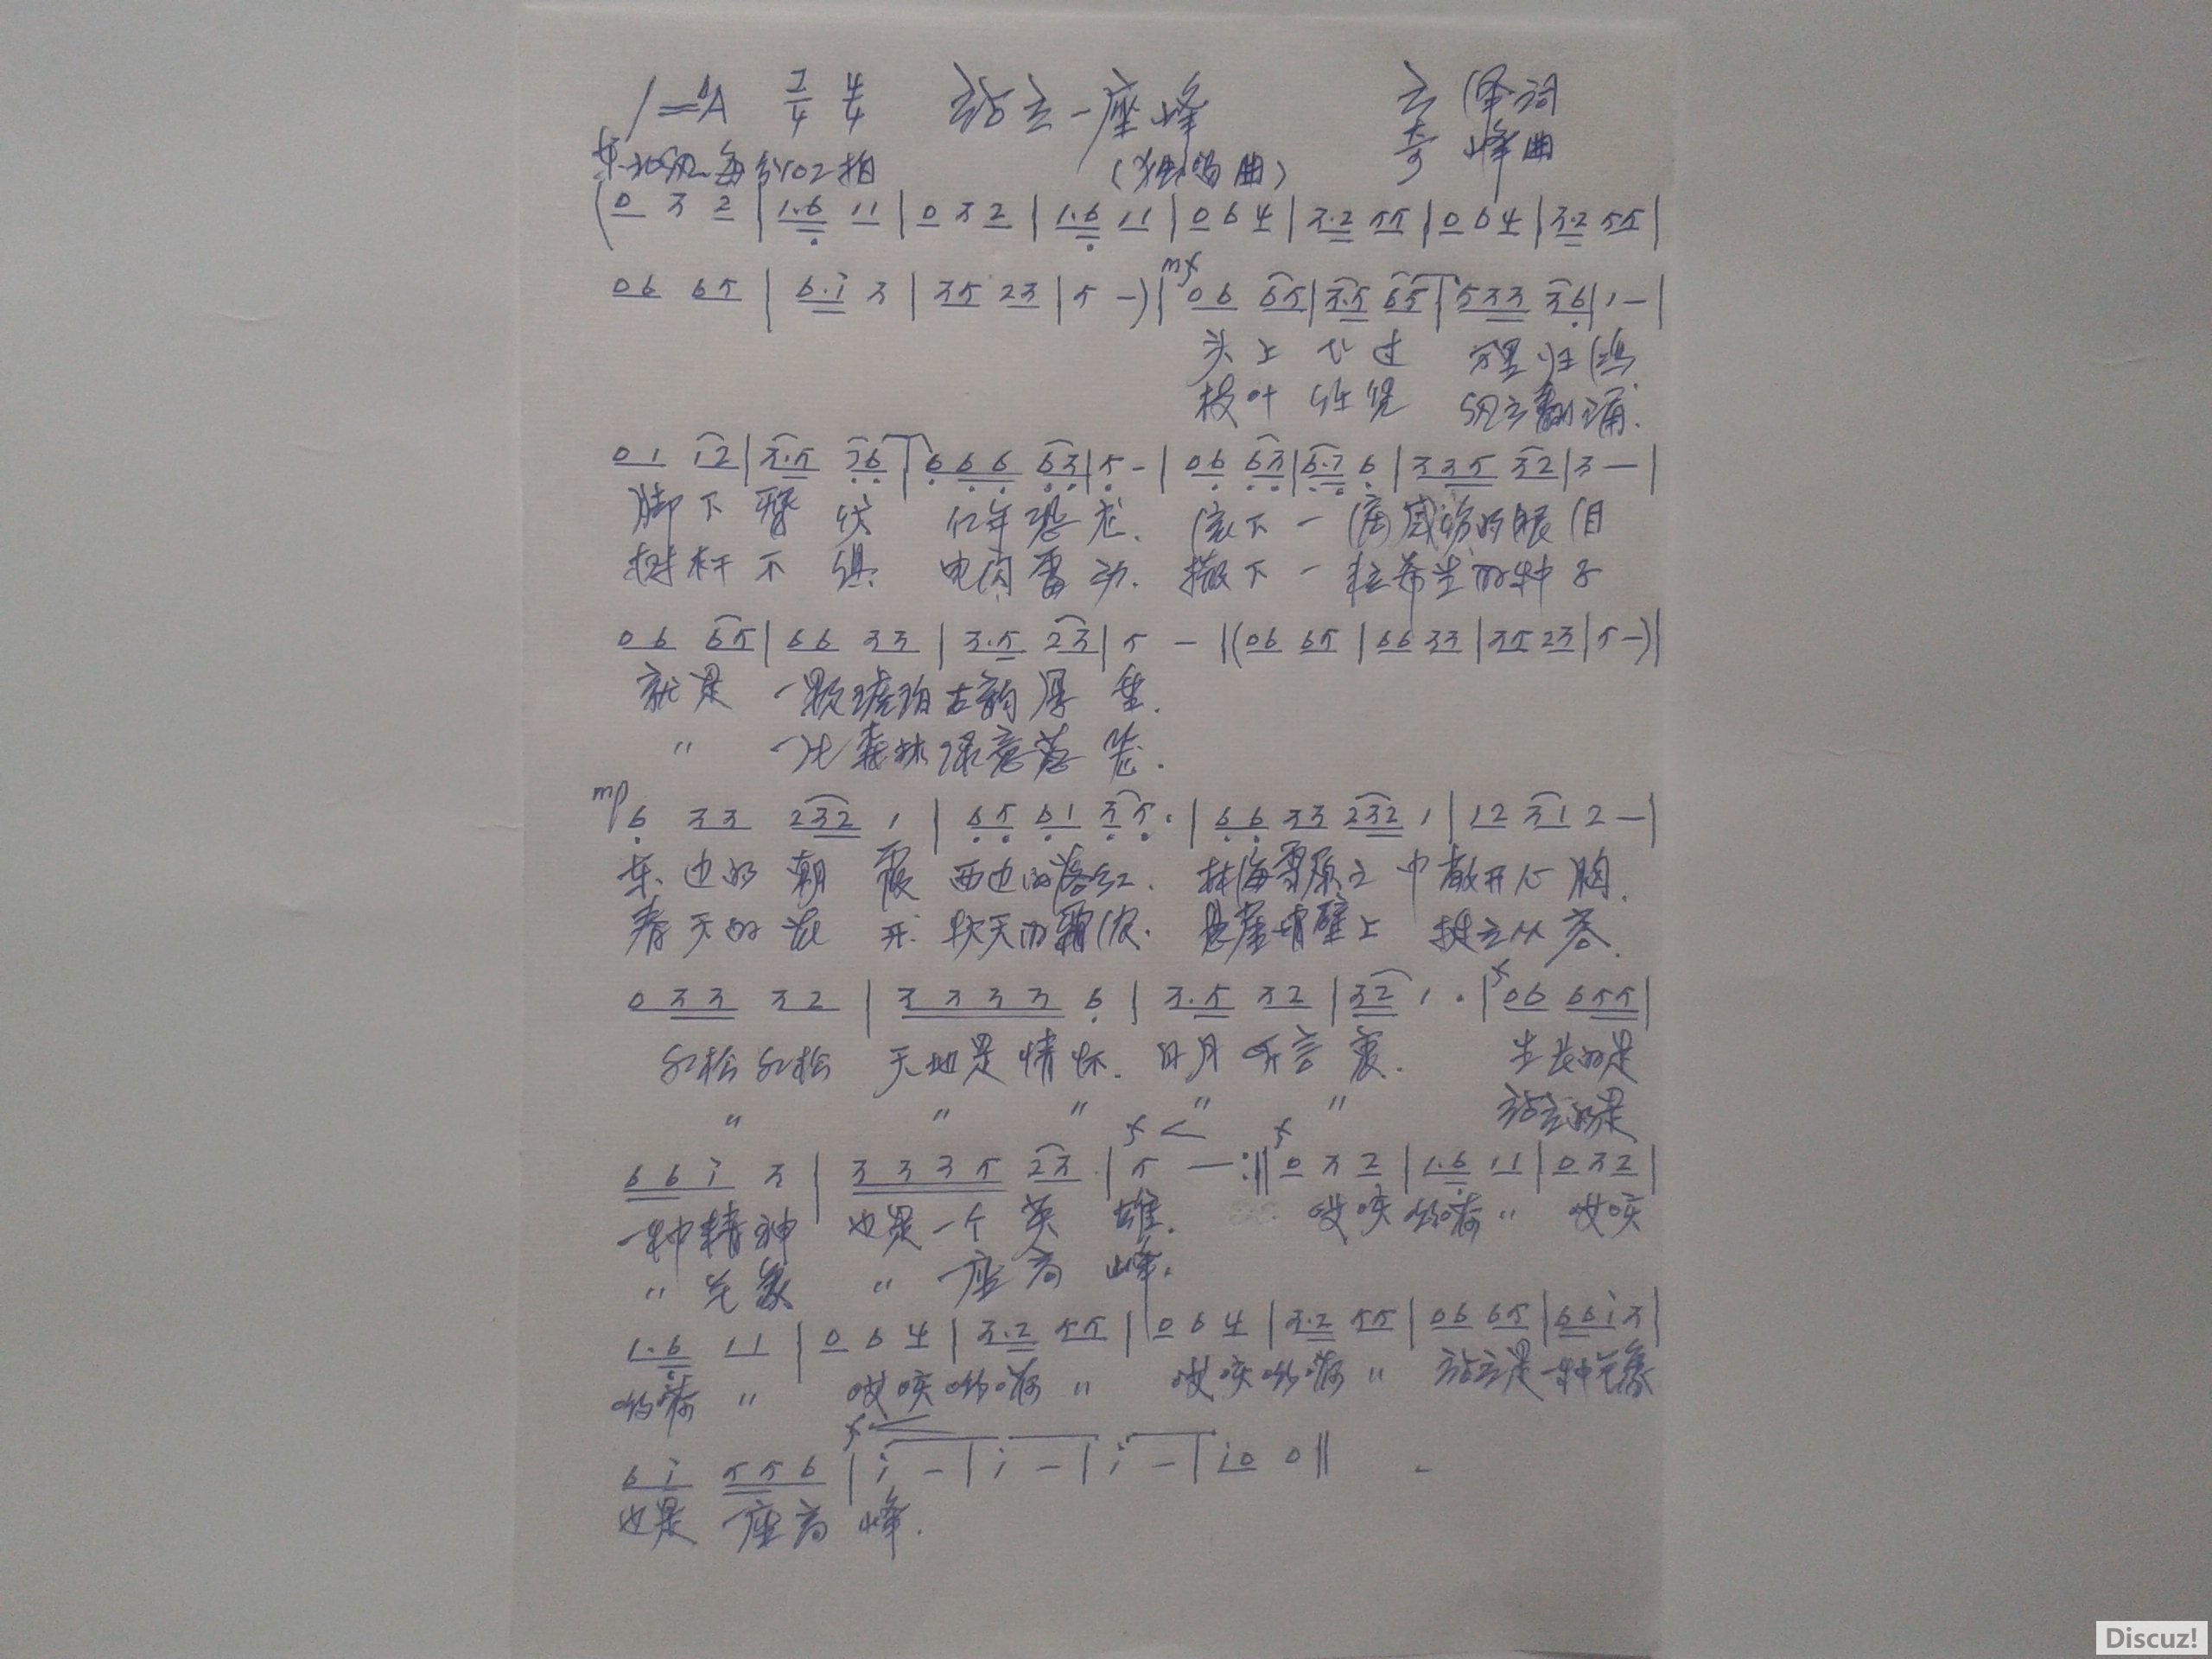 1=♭A 2/4 4/4 站立一座峰 云泽词
东北风 每分102拍 (独唱曲) 奇峰曲
(0 3 2 | 1·6 11 | 0 3 2 | 1·6 11 | 0 6 4 | 3·2 55 | 0 6 4 | 3·2 55 |
06 65 | 6·i 3 | 35 23 | 5 -) | mf 06 65 | 3·5 65 | 533 36 | 1 - |
头上飞过 万里归鸿
枝叶 风云翻涌.
01 12 | 3·5 36 | 666 63 | 5 - | 06 63 | 6·1 6 | 335 32 | 3 — |
脚下 伏 亿年恐龙. 流下一滴感动的眼泪
树杆不惧 电闪雷动. 撒下一粒希望的种子
06 65 | 66 33 | 3·5 23 | 5 - | (06 65 | 66 33 | 35 23 | 5 -) |
就是 一颗琥珀古韵厚重.
" 一片森林绿意葱茏.
mp 6 33 232 1 | 65 61 35· | 66 33 232 1 | 12 31 2 — |
东边的朝霞 西边的落红. 林海雪原之中敞开心胸.
春天的花开 秋天的霜浓. 悬崖峭壁上 挺立从容.
033 32 | 3333 6 | 3·5 32 | 32 1 · | f 06 655 |
红松红松 天地是情怀. 日月 生长的是
" " " " " 站立的是
f < f
66i 3 | 3335 23 | 5 — :‖ 0 3 2 | 1·6 11 | 0 3 2 |
一种精神 也是一个英雄. 哎咳哟嗬 " 哎咳
" 气象 " 一座高峰.
1·6 11 | 0 6 4 | 3·2 55 | 0 6 4 | 3·2 55 | 06 65 | 66i3 |
哟嗬 " 哎咳哟嗬 " 哎咳哟嗬 " 站立是一种气象
f <
6 i 556 | i - | i - | i - | i0 0 ‖
也是 一座高峰.
Discuz!